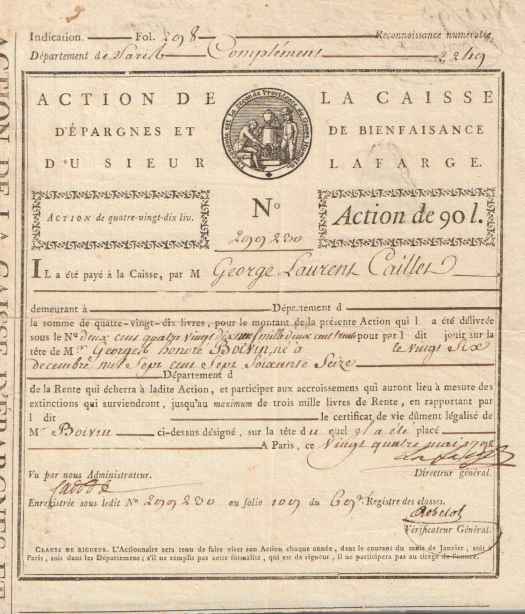 Indication. Fol. 298 Reconnoissance numérotée
Département de Paris Complément 2249
ACTION DE LA CAISSE
D'ÉPARGNES ET DE BIENFAISANCE
DU SIEUR LAFARGE.
ACTION de quatre-vingt-dix liv.
N° 299230
Action de 90 l.
IL a été payé à la Caisse, par M George Laurent Cailles
demeurant à Département d
la somme de quatre-vingt-dix livres, pour le montant de la présente Action qui l a été délivrée
sous le N° deux cens quatre vingt dix neuf mille deux cens trente pour par l dit jouir sur la
tête de M George honoré Boivin, né à le vingt Six
decembre mil Sept cens Sept Soixante Seize
Département d
de la Rente qui écherra à ladite Action, et participer aux accroissemens qui auront lieu à mesure des
extinctions qui surviendront, jusqu'au maximum de trois mille livres de Rente, en rapportant par
l dit le certificat de vie dûment légalisé de
M Boivin ci-dessus désigné, sur la tête du quel a de placé
A Paris, ce vingt quatre mai
Vu par nous Administrateur.
Directeur général.
Enregistrée sous ledit N° 299230 au folio 109 du Registre des classes.
Vérificateur Général.
CLAUSE DE RIGUEUR. L'Actionnaire sera tenu de faire viser son Action chaque année, dans le courant du mois de Janvier, soit à
Paris, soit dans les Départemens; s'il ne remplit pas cette formalité, qui est de rigueur, il ne participera pas au tirage
ACTION DE LA CAISSE D'ÉPARGNES ET